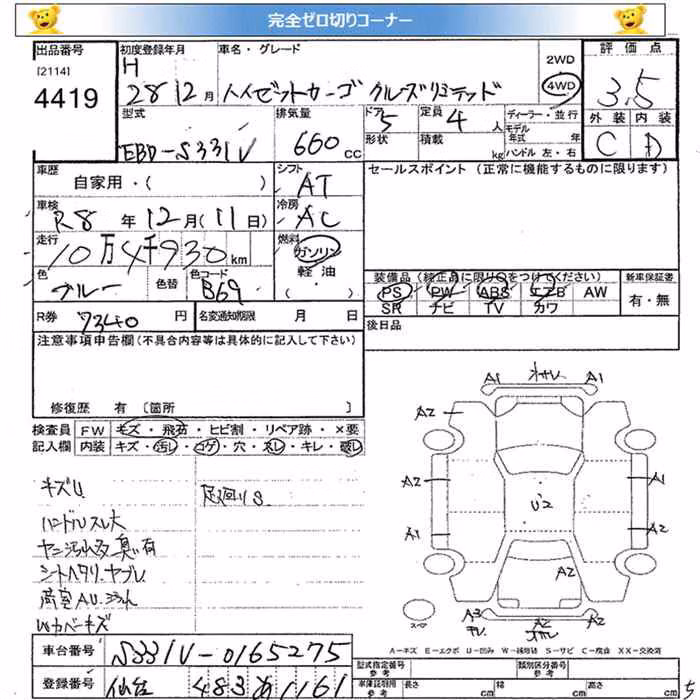 完全ゼロ切りコーナー
出品番号
[2114]
4419
初度登録年月
H
28 12月
車名・グレード
ハイゼットカーゴ クルーズリミテッド
2WD
4WD
評価点
3.5
外装 内装
C D
型式
EBD-S331V
排気量
660 cc
ドア 5
形状
定員 4 人
積載 kg
ディーラー・並行
モデル年式 年
ハンドル 左・右
車歴
自家用・( )
シフト
AT
セールスポイント (正常に機能するものに限ります)
車検
R8 年 12月(11日)
冷房
AC
走行
10万4千930 km
燃料
ガソリン
軽油
( ・ )
色
ブルー
色替
色コード
B69
装備品 (純正品に限り○をつけてください)
PS PW ABS エアB AW
SR ナビ TV カワ
新車保証書
有・無
R券 7340 円
名変通知期限 月 日
後日品
注意事項申告欄 (不具合内容等は具体的に記入して下さい)
修復歴 有 [箇所 ]
検査員記入欄
FW キズ・飛石・ヒビ割・リペア跡・×要
内装 キズ・汚れ・コゲ・穴・スレ・キレ・破レ
キズU
足廻りS
ハンドルスレ大
ヤニ汚れ多 臭い有
シートヘタリ・ヤブレ
荷室AU・ヨゴレ
A1 A1
A2 A2
A2 A1
U2
A1 A2
A2
A3 A2
キレ
スペア
A-キズ E-エクボ U-凹み W-補修跡 S-サビ C-腐食 XX-交換済
車台番号 S331V-0165275
登録番号 仙台 483 あ 1161
型式指定番号 参考
類別区分番号 参考
車体説明書 参考 長さ cm 幅 cm 高さ cm
5